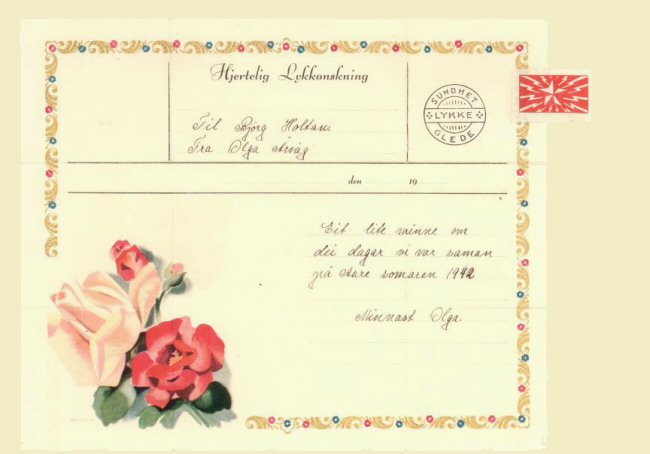 Hjertelig Lykkønskning
SUNDHET
LYKKE
GLEDE
Til Björg Holtan.
Fra Olga Årvåg
den 19
Eit lite minne om
dei dagar vi var saman
på Aure somaren 1942
Minnast Olga.